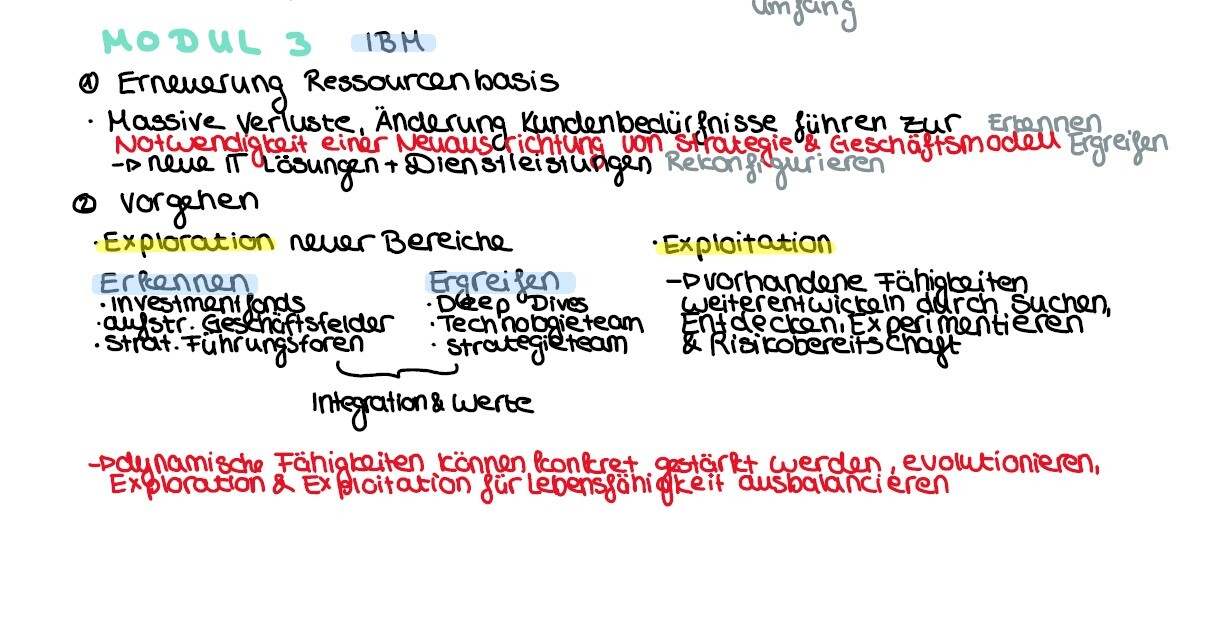 Umfang
MODUL 3 IBM
① Erneuerung Ressourcenbasis
· Massive Verluste, Änderung Kundenbedürfnisse führen zur Erkennen
Notwendigkeit einer Neuausrichtung von Strategie & Geschäftsmodell Ergreifen
-> neue IT Lösungen + Dienstleistungen Rekonfigurieren
② Vorgehen
· Exploration neuer Bereiche
Erkennen
· Investmentfonds
· aufstr. Geschäftsfelder
· Strat. Führungsforen
Ergreifen
· Deep Dives
· Technologieteam
· Strategieteam
Integration & Werte
· Exploitation
-> vorhandene Fähigkeiten
weiterentwickeln durch Suchen,
Entdecken, Experimentieren
& Risikobereitschaft
-> dynamische Fähigkeiten können konkret gestärkt werden, evolutionieren,
Exploration & Exploitation für Lebensfähigkeit ausbalancieren